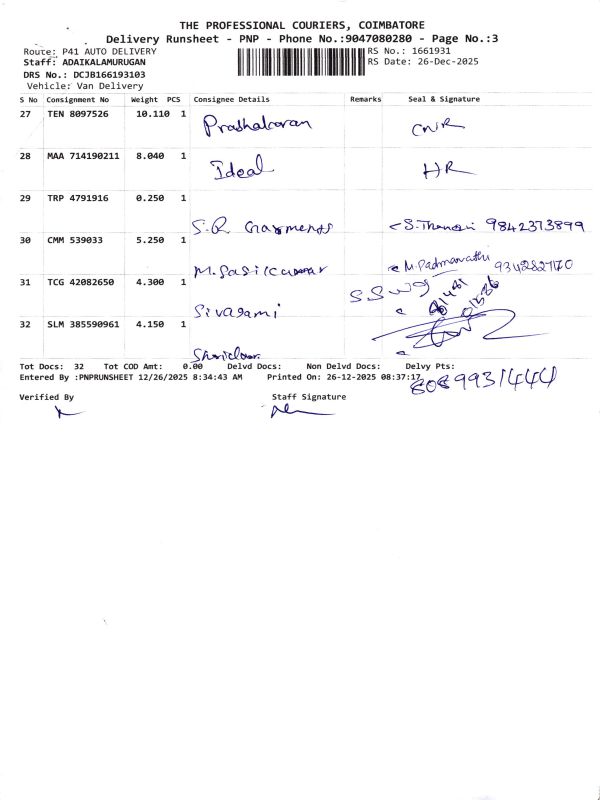 THE PROFESSIONAL COURIERS, COIMBATORE
Delivery Runsheet - PNP - Phone No.:9047080280 - Page No.:3
Route: P41 AUTO DELIVERY RS No.: 1661931
Staff: ADAIKALAMURUGAN RS Date: 26-Dec-2025
DRS No.: DCJB166193103
Vehicle: Van Delivery
S No Consignment No Weight PCS Consignee Details Remarks Seal & Signature
27 TEN 8097526 10.110 1 Prabhakaran
28 MAA 714190211 8.040 1 Ideal HR
29 TRP 4791916 0.250 1
S.R Garments 9842373899
30 CMM 539033 5.250 1
M.Sasikumar M.Padmavathi 9342827170
31 TCG 42082650 4.300 1
Sivagami
32 SLM 385590961 4.150 1
Tot Docs: 32 Tot COD Amt: 0.00 Delvd Docs: Non Delvd Docs: Delvy Pts:
Entered By :PNPRUNSHEET 12/26/2025 8:34:43 AM Printed On: 26-12-2025 08:37:17
Verified By Staff Signature